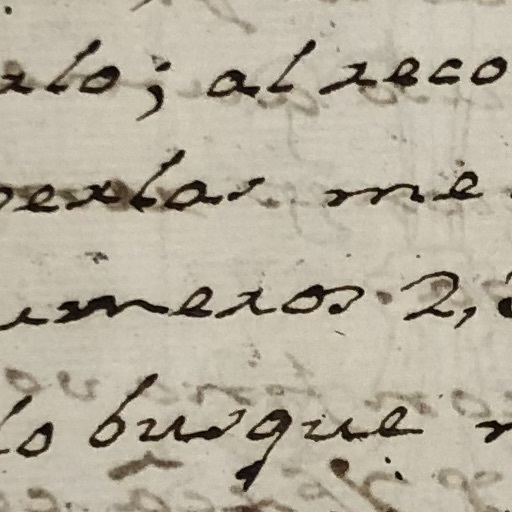 rlo; al reco
perlas me
umeros 2,
lo busque